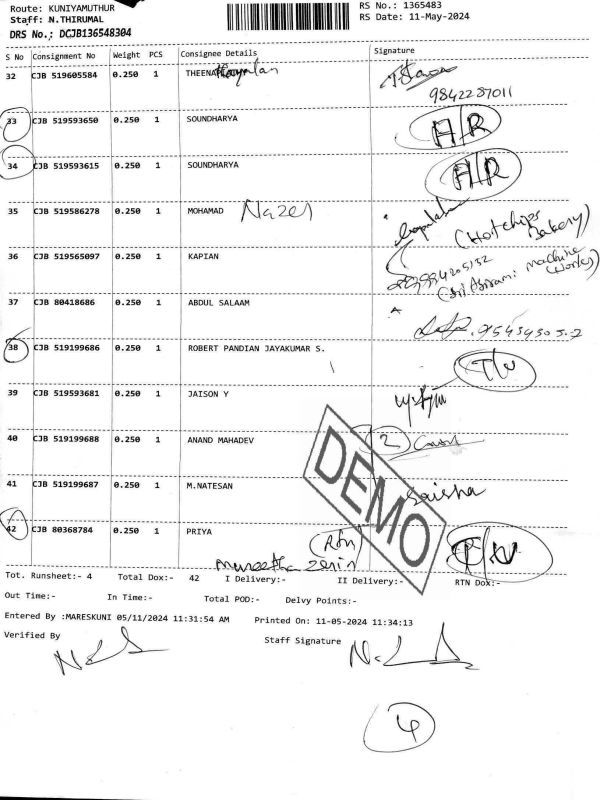 Route: KUNIYAMUTHUR
Staff: N.THIRUMAL
DRS No.: DCJB136548304
RS No.: 1365483
RS Date: 11-May-2024
S No Consignment No Weight PCS Consignee Details Signature
32 CJB 519605584 0.250 1
9842287011
33 CJB 519593650 0.250 1 SOUNDHARYA A/R
34 CJB 519593615 0.250 1 SOUNDHARYA A/R
35 CJB 519586278 0.250 1 MOHAMAD Nazer
(Hotchips
Bakery)
36 CJB 519565097 0.250 1 KAPIAN
machine
works)
37 CJB 80418686 0.250 1 ABDUL SALAAM
38 CJB 519199686 0.250 1 ROBERT PANDIAN JAYAKUMAR S.
39 CJB 519593681 0.250 1 JAISON Y
40 CJB 519199688 0.250 1 ANAND MAHADEV 2
DEMO
41 CJB 519199687 0.250 1 M.NATESAN Saisha
42 CJB 80368784 0.250 1 PRIYA
Tot. Runsheet:- 4 Total Dox:- 42 I Delivery:- II Delivery:- RTN Dox:-
Out Time:- In Time:- Total POD:- Delvy Points:-
Entered By :MARESKUNI 05/11/2024 11:31:54 AM Printed On: 11-05-2024 11:34:13
Verified By Staff Signature
4